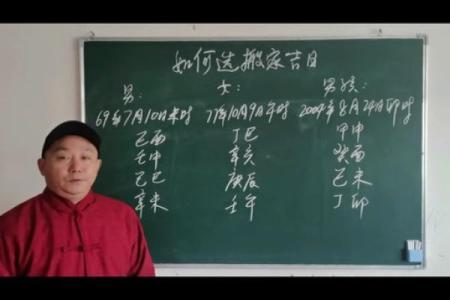 如何选搬家吉日
男： 女： 男孩：
69年7月10日未时 77年10月9日午时 2004年8月24日卯时
己酉 丁巳 甲申
壬申 辛亥 癸酉
己巳 庚辰 己未
辛未 壬午 丁卯